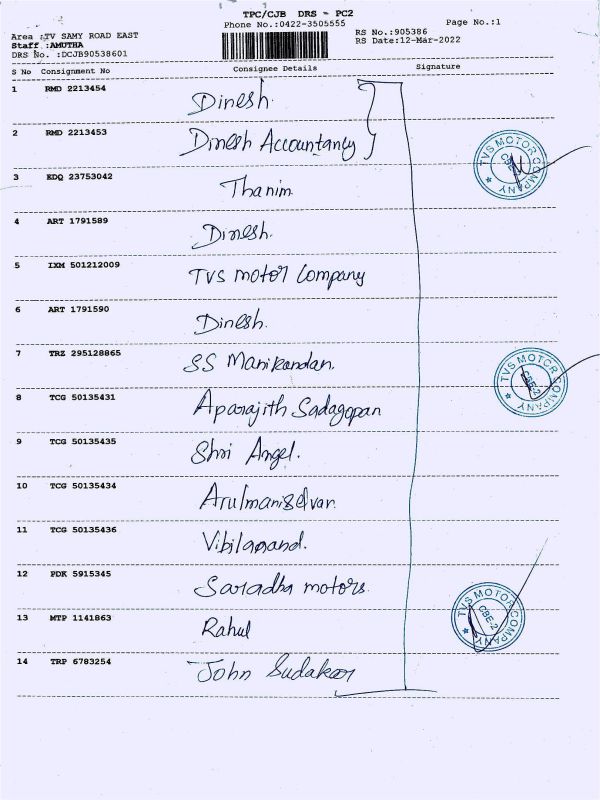 TPC/CJB DRS - PC2
Phone No.:0422-3505555
Page No.:1
Area :TV SAMY ROAD EAST
Staff :AMUTHA
DRS No. :DCJB90538601
RS No.:905386
RS Date:12-Mar-2022
S No Consignment No Consignee Details Signature
1 RMD 2213454 Dinesh.
2 RMD 2213453 Dinesh Accountanly
3 KDQ 23753042 Thanim
4 ART 1791589 Dinesh.
5 IXM 501212009 TVS motor Company
6 ART 1791590 Dinesh.
7 TRZ 295128865 SS Manikandan.
8 TCG 50135431 Aparajith Sadagopan
9 TCG 50135435 Shri Angel.
10 TCG 50135434 Arulmaniselvan
11 TCG 50135436
12 PDK 5915345 Saradha motors.
13 MTP 1141863 Rahul
14 TRP 6783254 John Sudakar
TVS MOTOR COMPANY
CBE-2
TVS MOTOR COMPANY
CBE-2
TVS MOTOR COMPANY
CBE-2